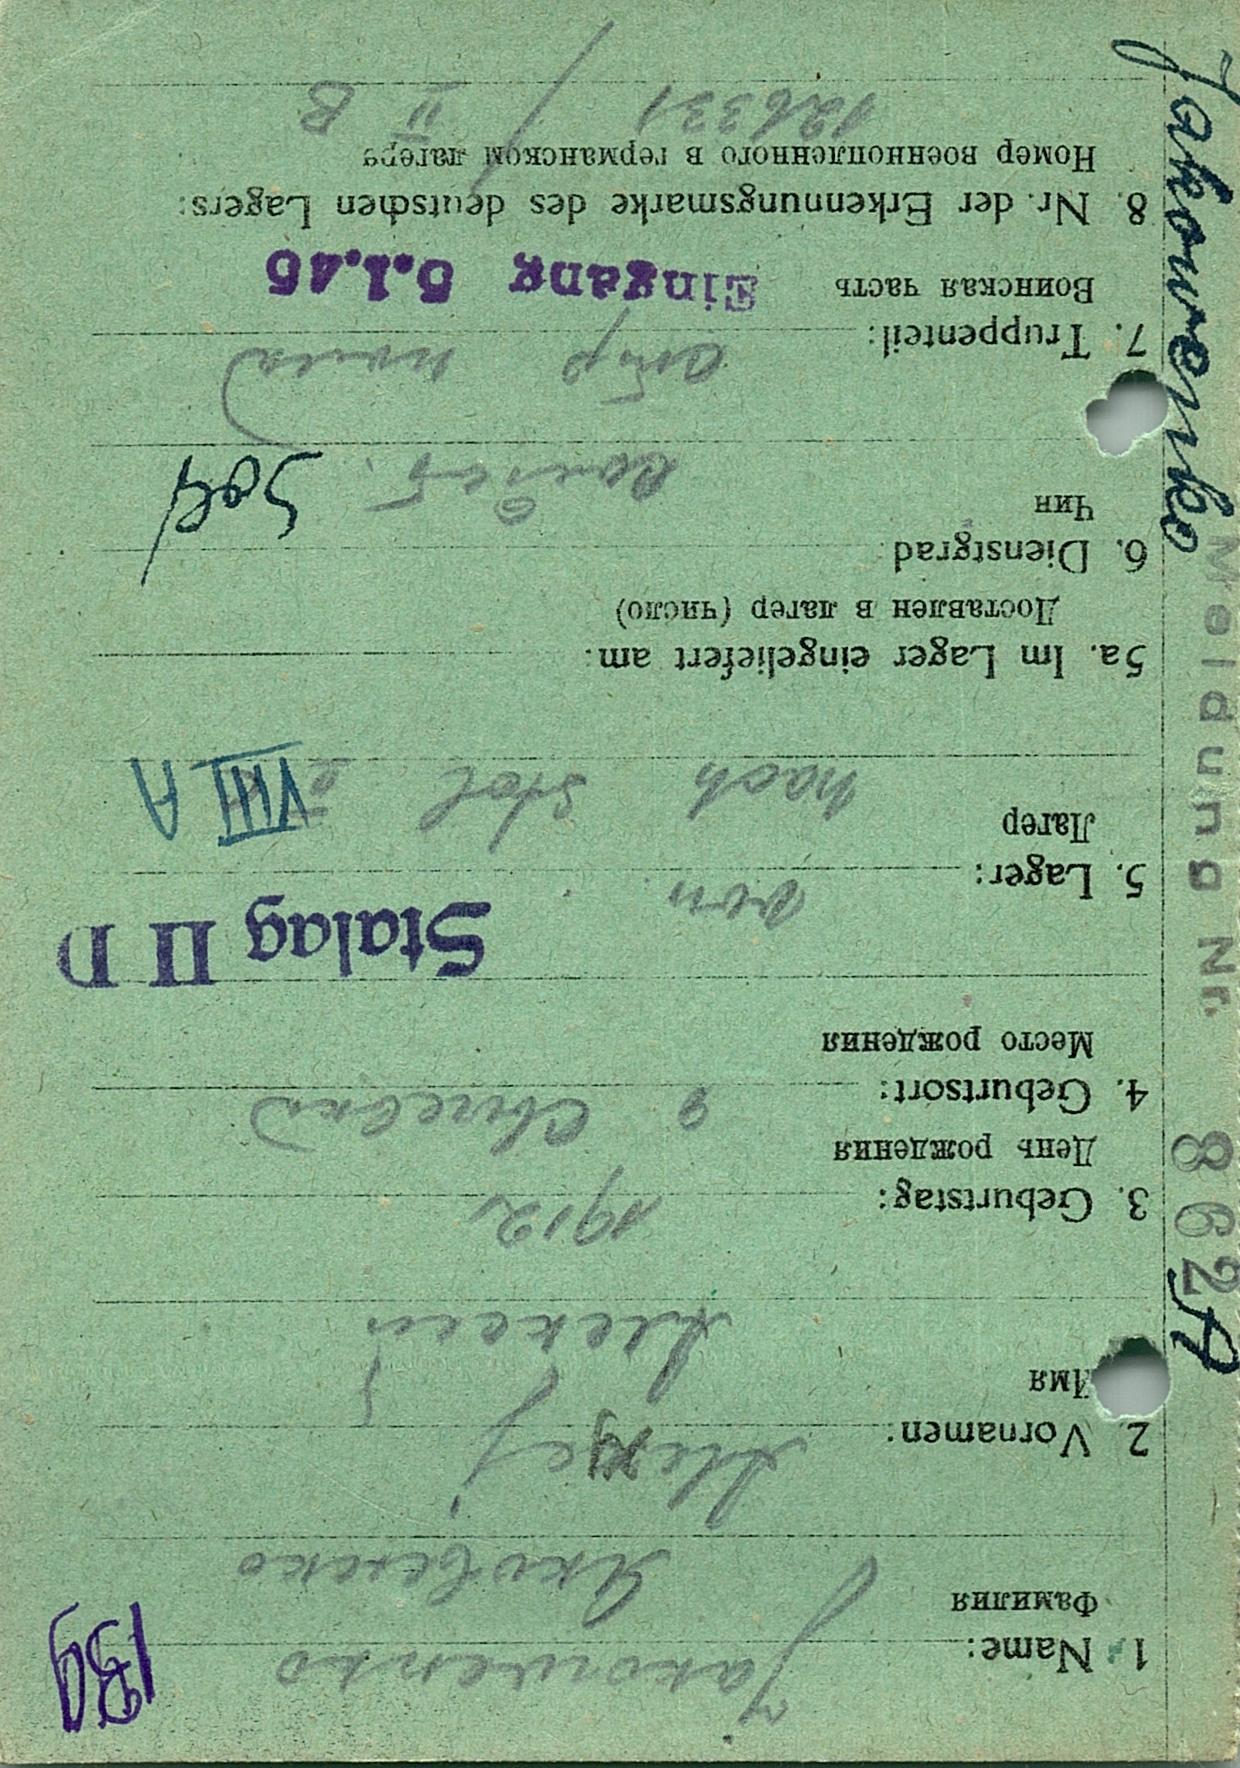 1. Name: Jakowenko
Фамилия Яковенко
2. Vornamen: Alexej
Имя Алексей
3. Geburtstag: 1912
День рождения
4. Geburtsort:
Место рождения
Stalag II D
5. Lager: von
Лагер nach Stal VIII A
5a. Im Lager eingeliefert am:
Доставлен в лагер (число)
6. Dienstgrad
Чин Sol
7. Truppenteil:
Воинская часть Eingang 5.1.45
8. Nr. der Erkennungsmarke des deutschen Lagers:
Номер военнопленного в германском лагере
126331 / II B
A Jakowenko
Meldung Nr. 862